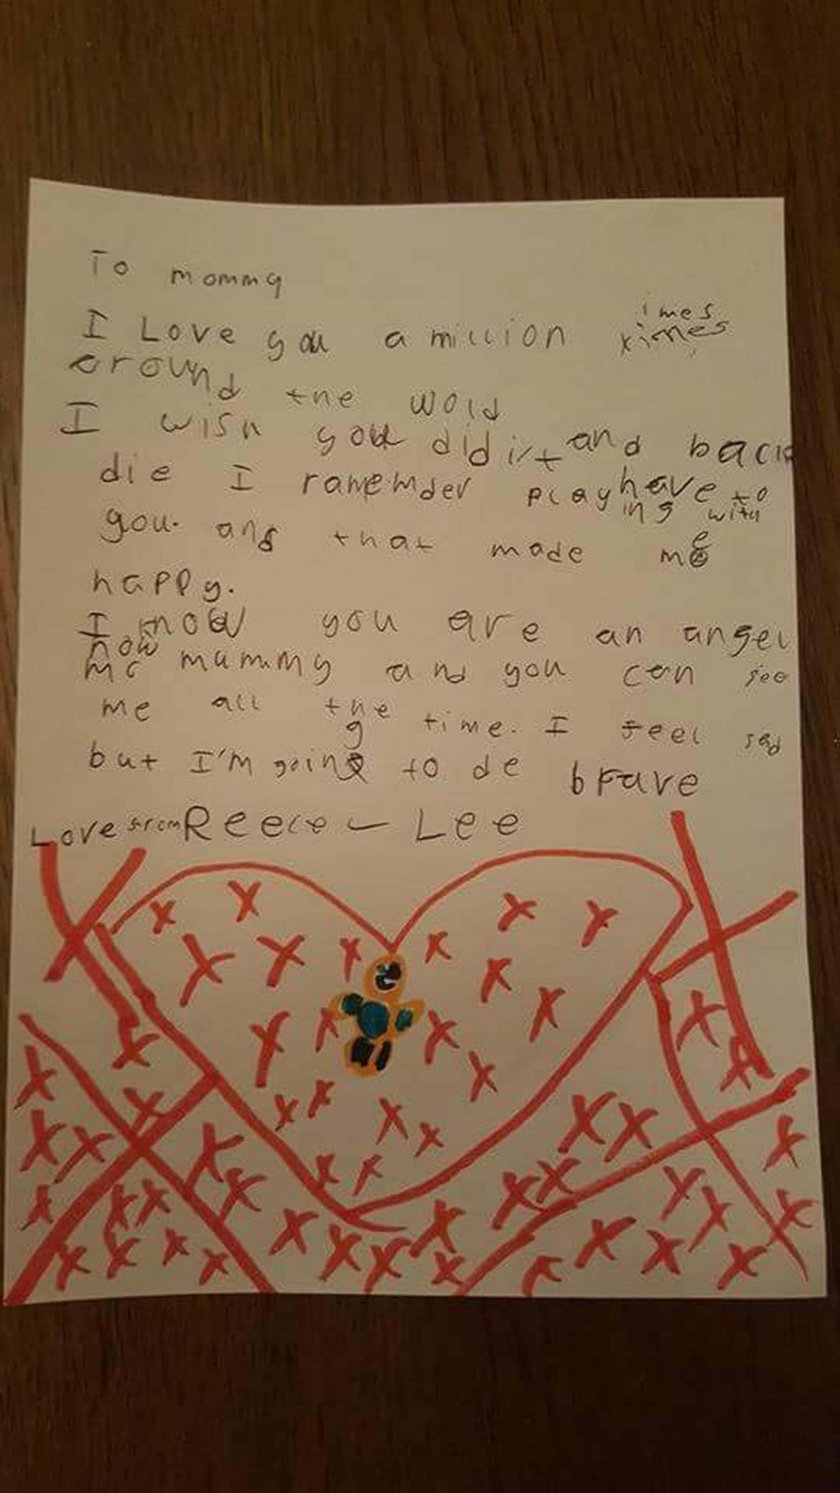 To mommy
I Love you a million times
imes
around the wold
and back
I wish you didit have to
die I ramember playing with
you. and that made me
happy.
I know you are an angel
now
mc mummy and you can see
me all the time. I feel sad
but I'm going to de brave
Love from Reece - Lee
x x x x x x x x x x x x x x x x x x x x